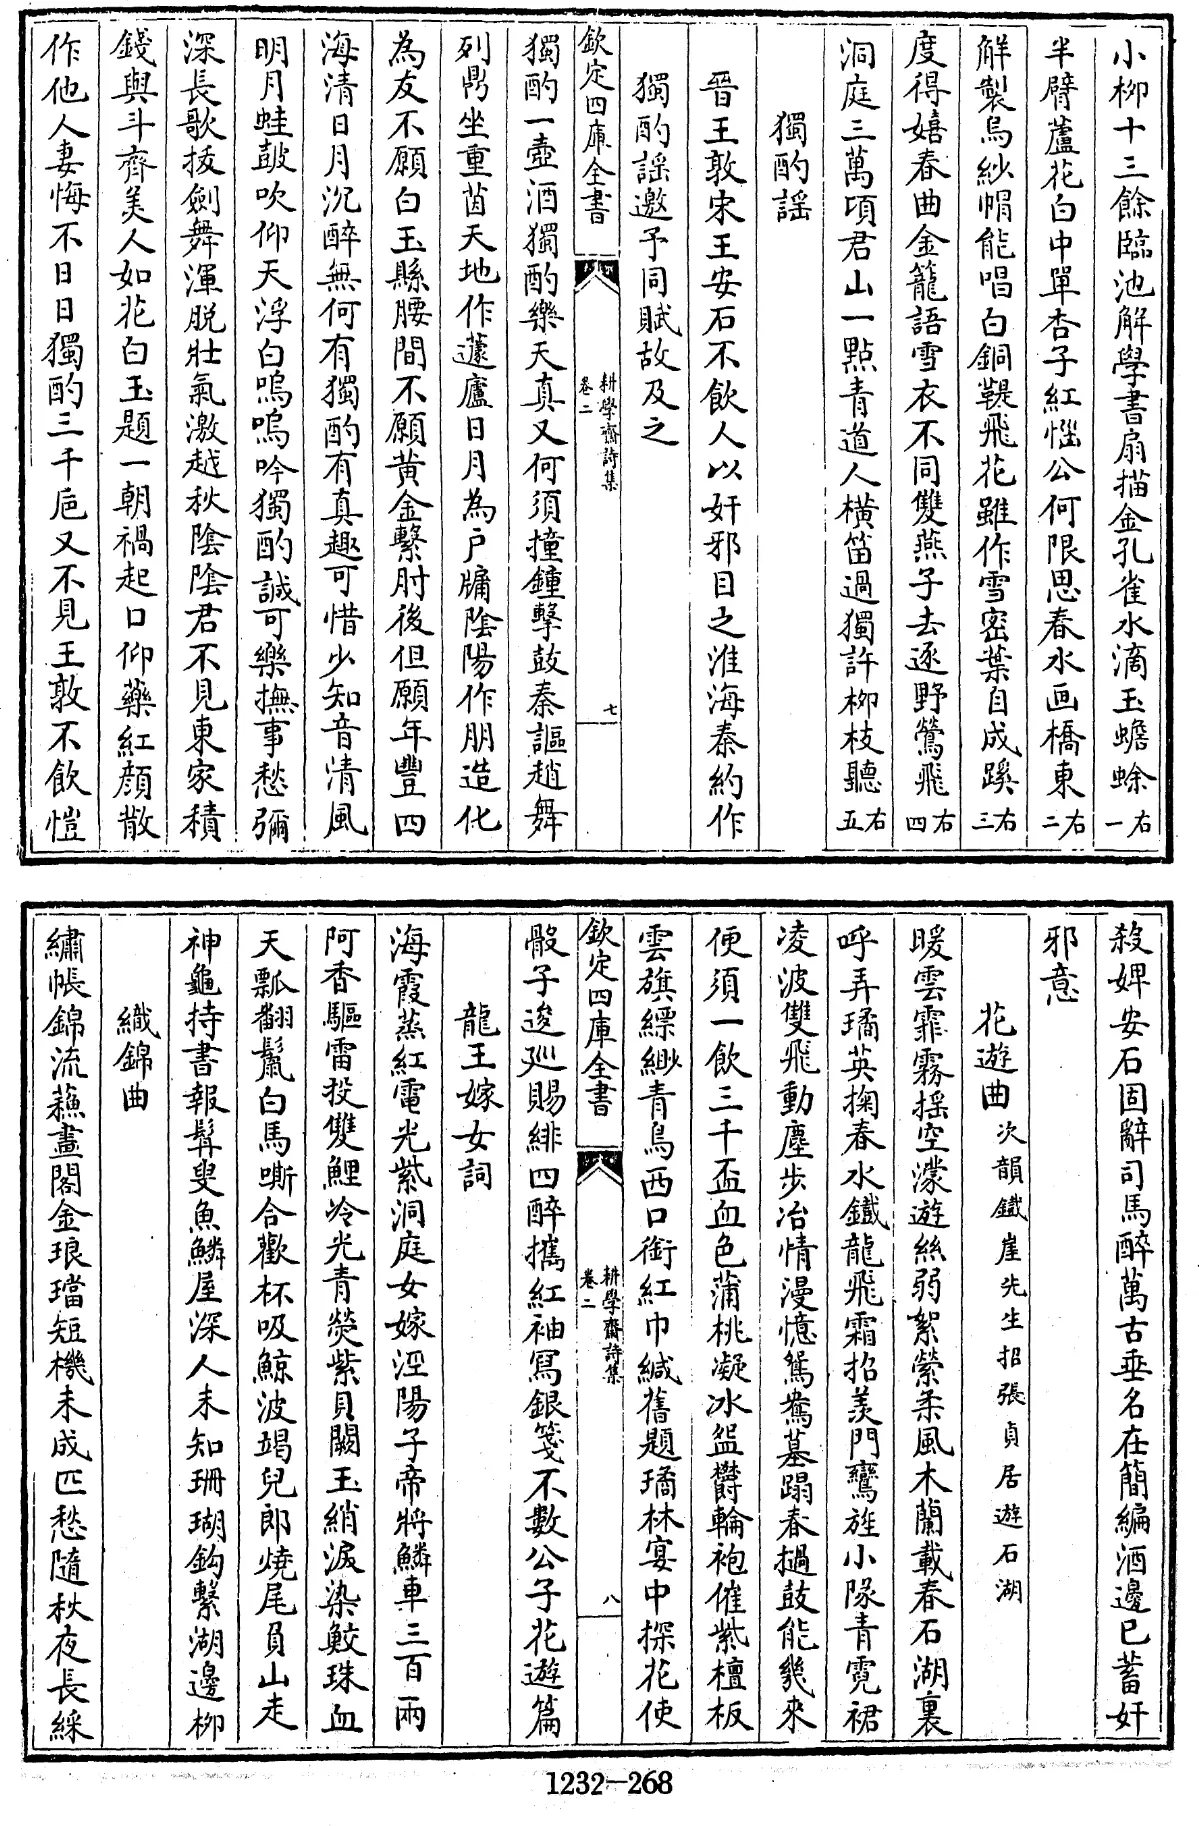 小栁十三餘臨池解學書扇描金孔雀水滴玉蟾蜍右一
半臂蘆花白中單杏子紅惱公何限思春水画橋東右二
解製烏紗帽能唱白銅鞮飛花雖作雪密葉自成蹊右三
度得嬉春曲金籠語雪衣不同雙燕子去逐野鶯飛右四
洞庭三萬頃君山一點青道人橫笛過獨許栁枝聽右五
獨酌謡
晉王敦宋王安石不飲人以奸邪目之淮海秦約作
獨酌謡邀予同賦故及之
欽定四庫全書
耕學齋詩集
卷二
七
獨酌一壺酒獨酌樂天真又何須撞鐘擊鼓秦謳趙舞
列鼎坐重茵天地作蘧廬日月為户牖陰陽作朋造化
為友不願白玉縣腰間不願黄金繫肘後但願年豐四
海清日月沉醉無何有獨酌有真趣可惜少知音清風
明月蛙鼓吹仰天浮白嗚嗚吟獨酌誠可樂撫事愁彌
深長歌拔劍舞渾脱壯氣激越秋陰陰君不見東家積
錢與斗齊美人如花白玉題一朝禍起口仰藥紅顔散
作他人妻悔不日日獨酌三千巵又不見王敦不飲愷
殺婢安石固辭司馬醉萬古垂名在簡編酒邊已蓄奸
邪意
花遊曲次韻鐵崖先生招張貞居遊石湖
暖雲霏霧揺空濛遊絲弱絮縈柔風木蘭載春石湖裏
呼弄璚英掬春水鐵龍飛霜招羡門鸞旌小隊青霓裙
凌波雙飛動塵步冶情漫憶鴛鴦墓蹋春撾鼓能幾來
便須一飲三千盃血色蒲桃凝冰盌欝輪袍催紫檀板
雲旗縹緲青鳥西口銜紅巾緘舊題璚林宴中探花使
欽定四庫全書
耕學齋詩集
卷二
八
骰子逡廵賜緋四醉攜紅袖寫銀箋不數公子花遊篇
龍王嫁女詞
海霞蒸紅電光紫洞庭女嫁涇陽子帝將鱗車三百兩
阿香驅雷投雙鯉冷光青熒紫貝闕玉綃淚染鮫珠血
天瓢翻鬣白馬嘶合歡杯吸鯨波竭兒郎燒尾員山走
神龜持書報髯叟魚鱗屋深人未知珊瑚鈎繫湖邊栁
織錦曲
繡帳錦流蘓畫閣金琅璫短機未成匹愁隨秋夜長綵
1232—268